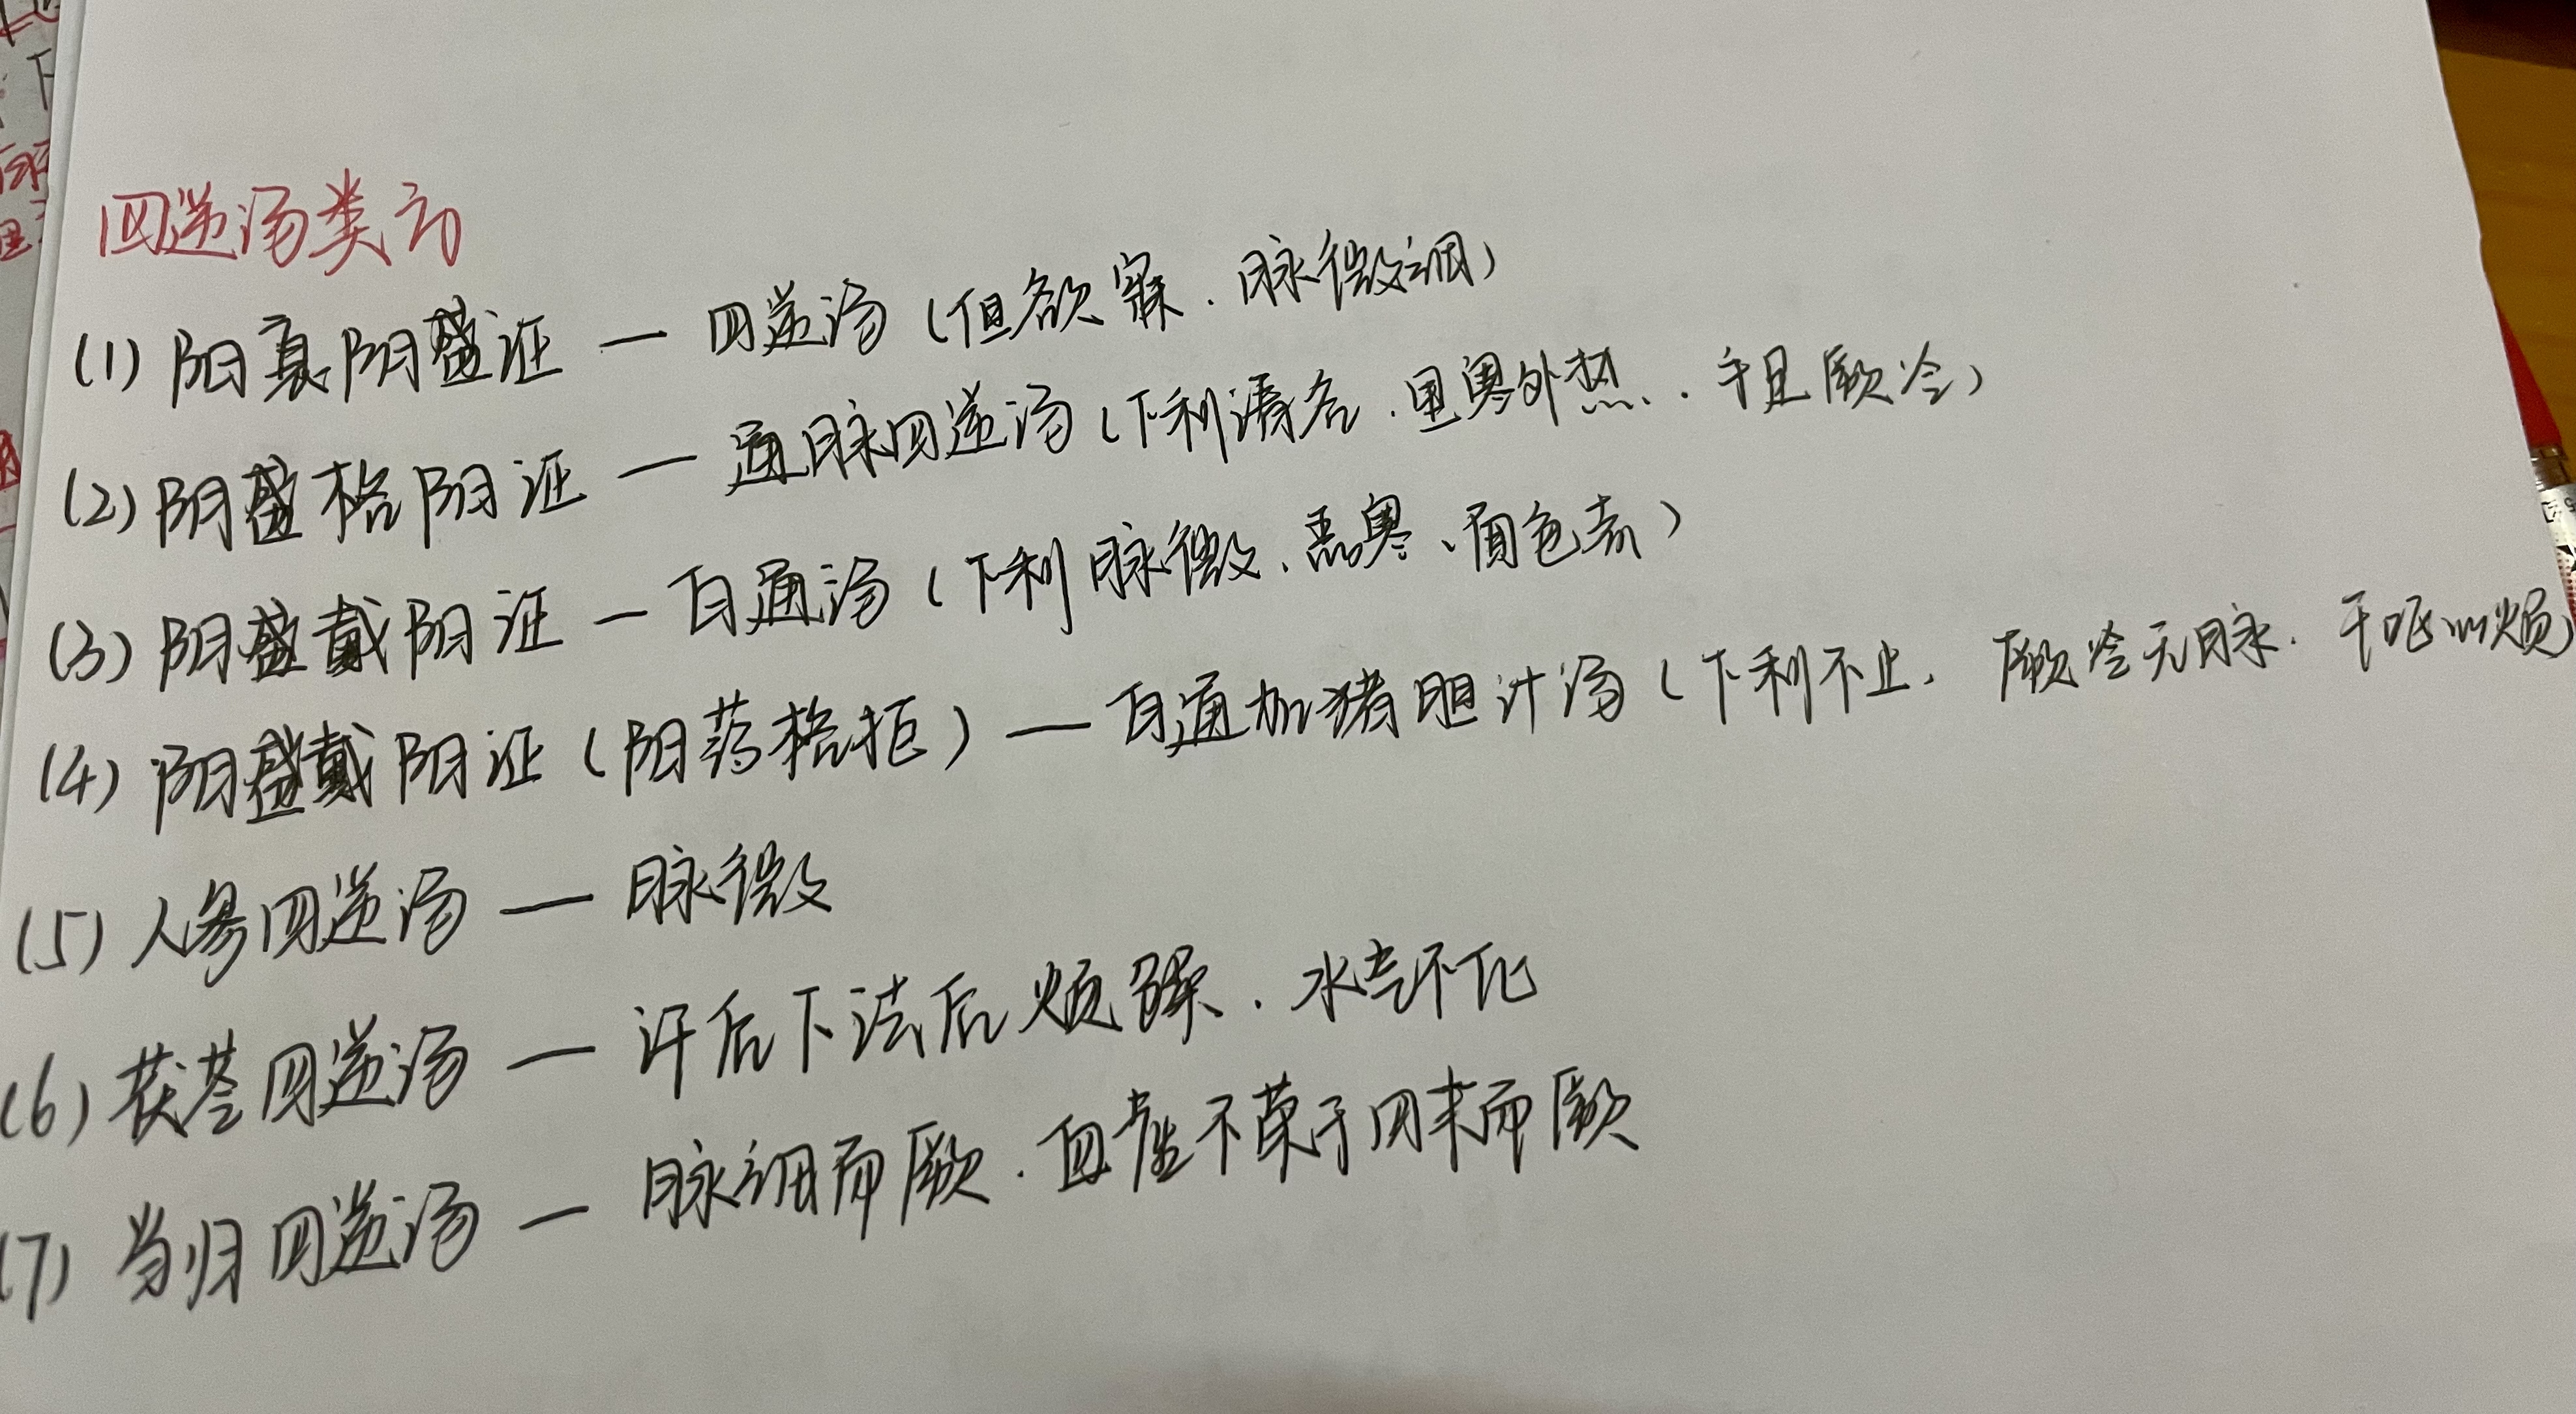 四逆汤类方
(1) 阳衰阴盛证 — 四逆汤(但欲寐.脉微细)
(2) 阴盛格阳证 — 通脉四逆汤(下利清谷.里寒外热.手足厥冷)
(3) 阴盛戴阳证 — 白通汤(下利脉微.恶寒、面色赤)
(4) 阴盛戴阳证(阳药格拒) — 白通加猪胆汁汤(下利不止.厥冷无脉.干呕心烦)
(5) 人参四逆汤 — 脉微
(6) 茯苓四逆汤 — 汗后下法后烦躁.水气不化
(7) 当归四逆汤 — 脉细而厥.血虚不荣于四末而厥